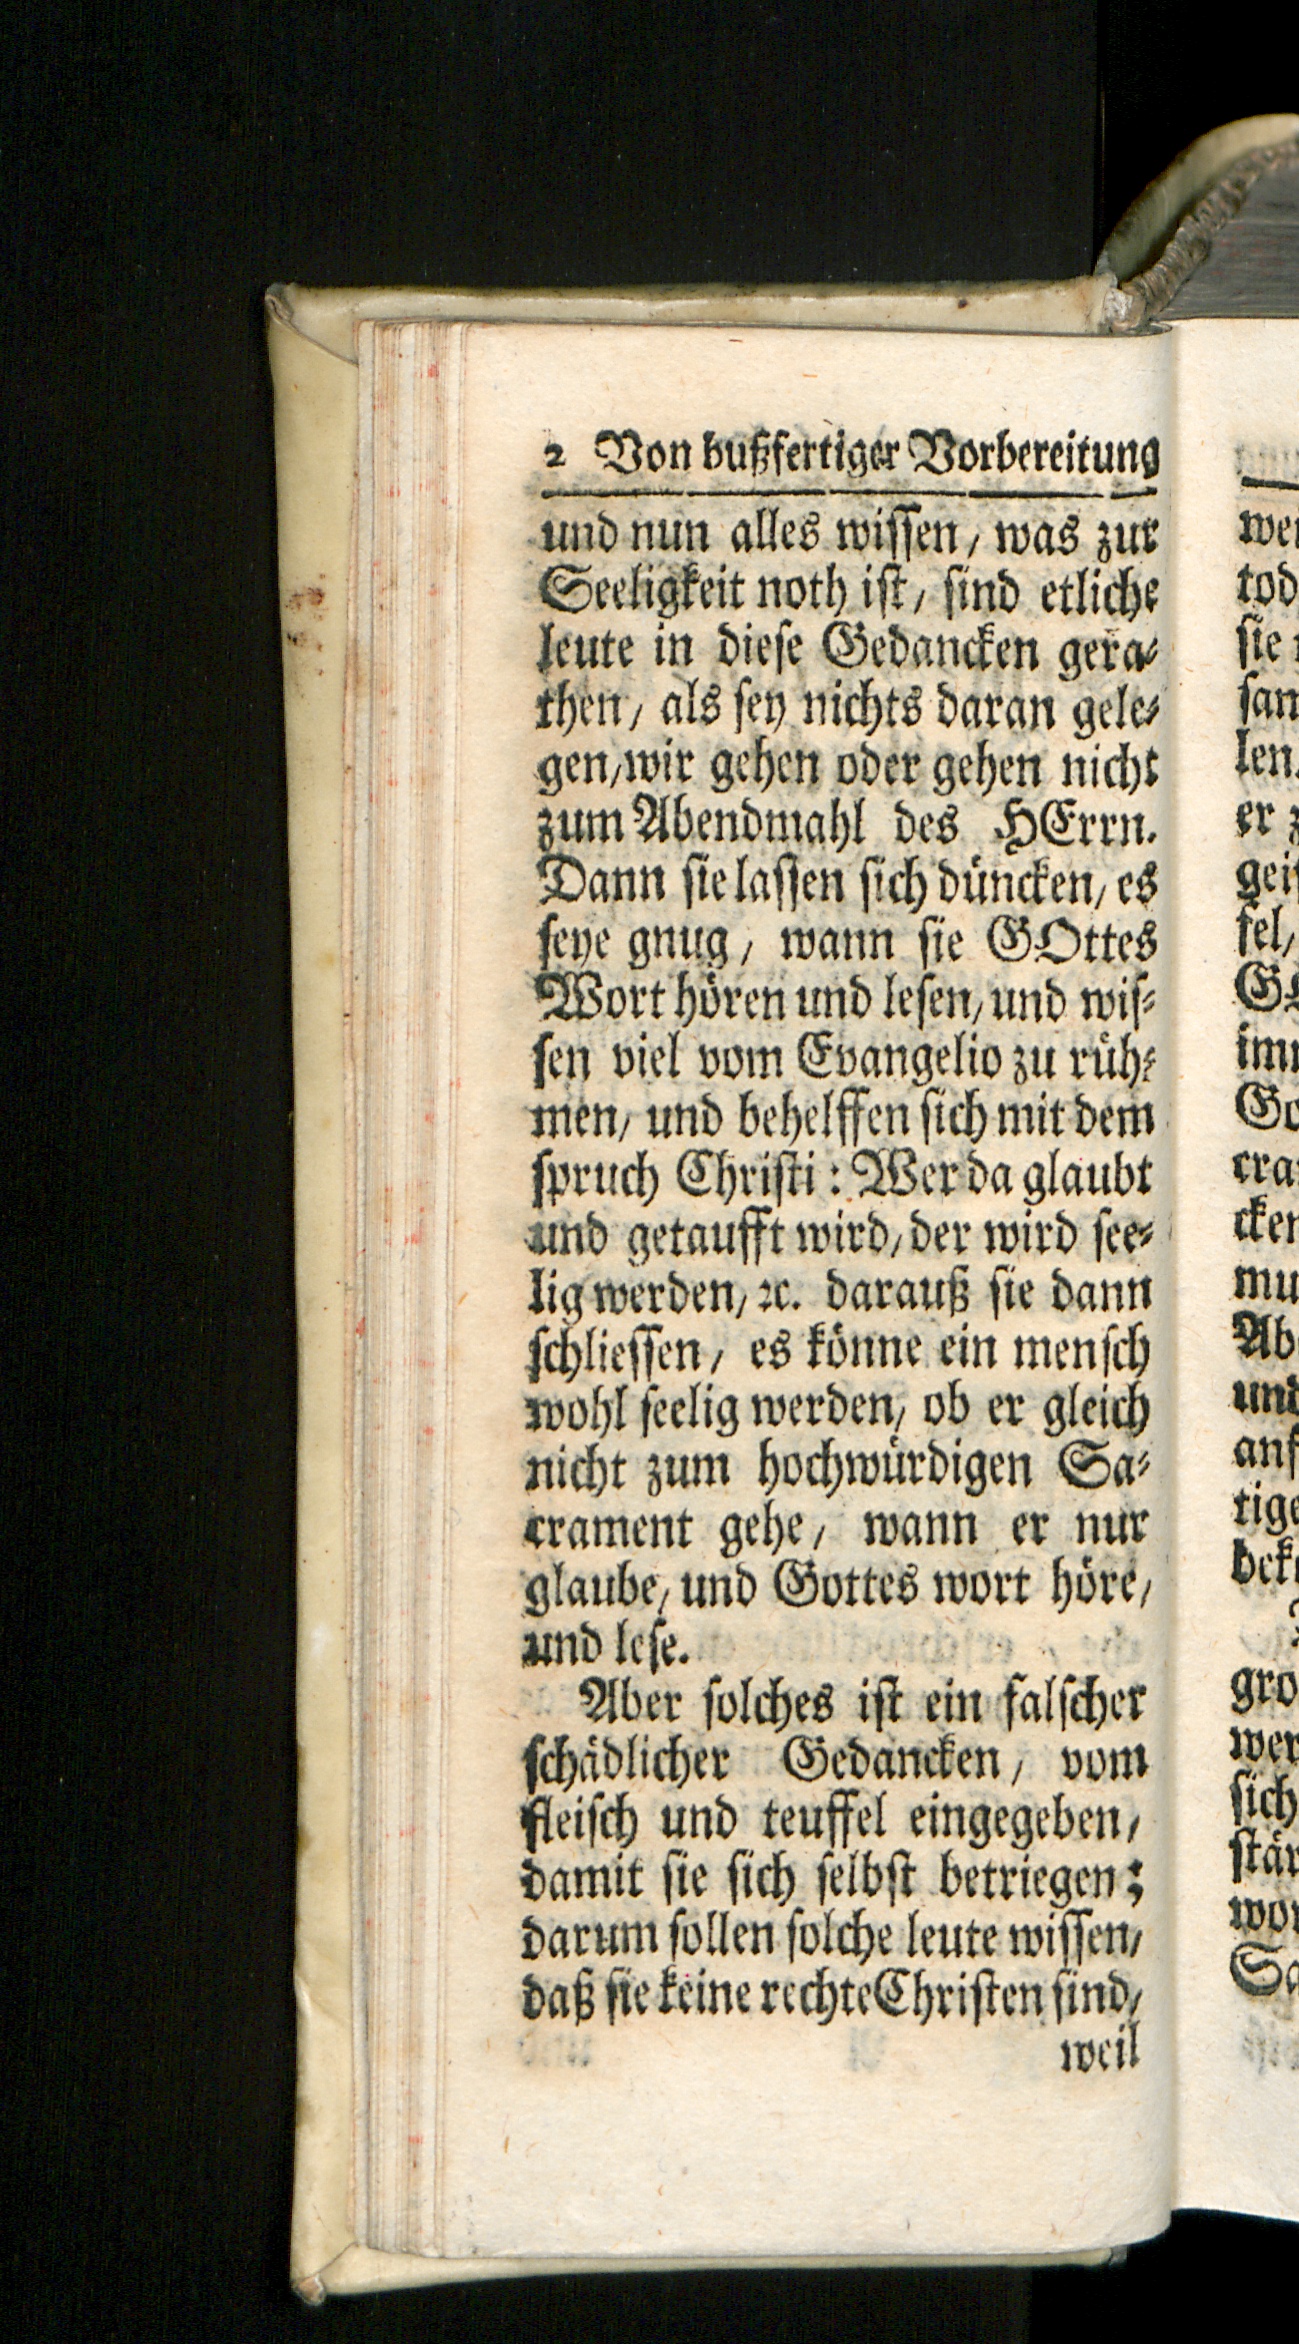 2 Von bußfertiger Vorbereitung
und nun alles wissen, was zur
Seeligkeit noth ist, sind etliche
leute in diese Gedancken gera-
then, als sey nichts daran gele-
gen, wir gehen oder gehen nicht
zum Abendmahl des HErrn.
Dann sie lassen sich düncken, es
seye gnug, wann sie GOttes
Wort hören und lesen, und wis-
sen viel vom Evangelio zu rüh-
men, und behelffen sich mit dem
spruch Christi: Wer da glaubt
und getaufft wird, der wird see-
lig werden, ꝛc. darauß sie dann
schliessen, es könne ein mensch
wohl seelig werden, ob er gleich
nicht zum hochwürdigen Sa-
crament gehe, wann er nur
glaube, und Gottes wort höre,
und lese.
Aber solches ist ein falscher
schädlicher Gedancken, vom
fleisch und teuffel eingegeben,
damit sie sich selbst betriegen;
darum sollen solche leute wissen,
daß sie keine rechte Christen sind,
weil